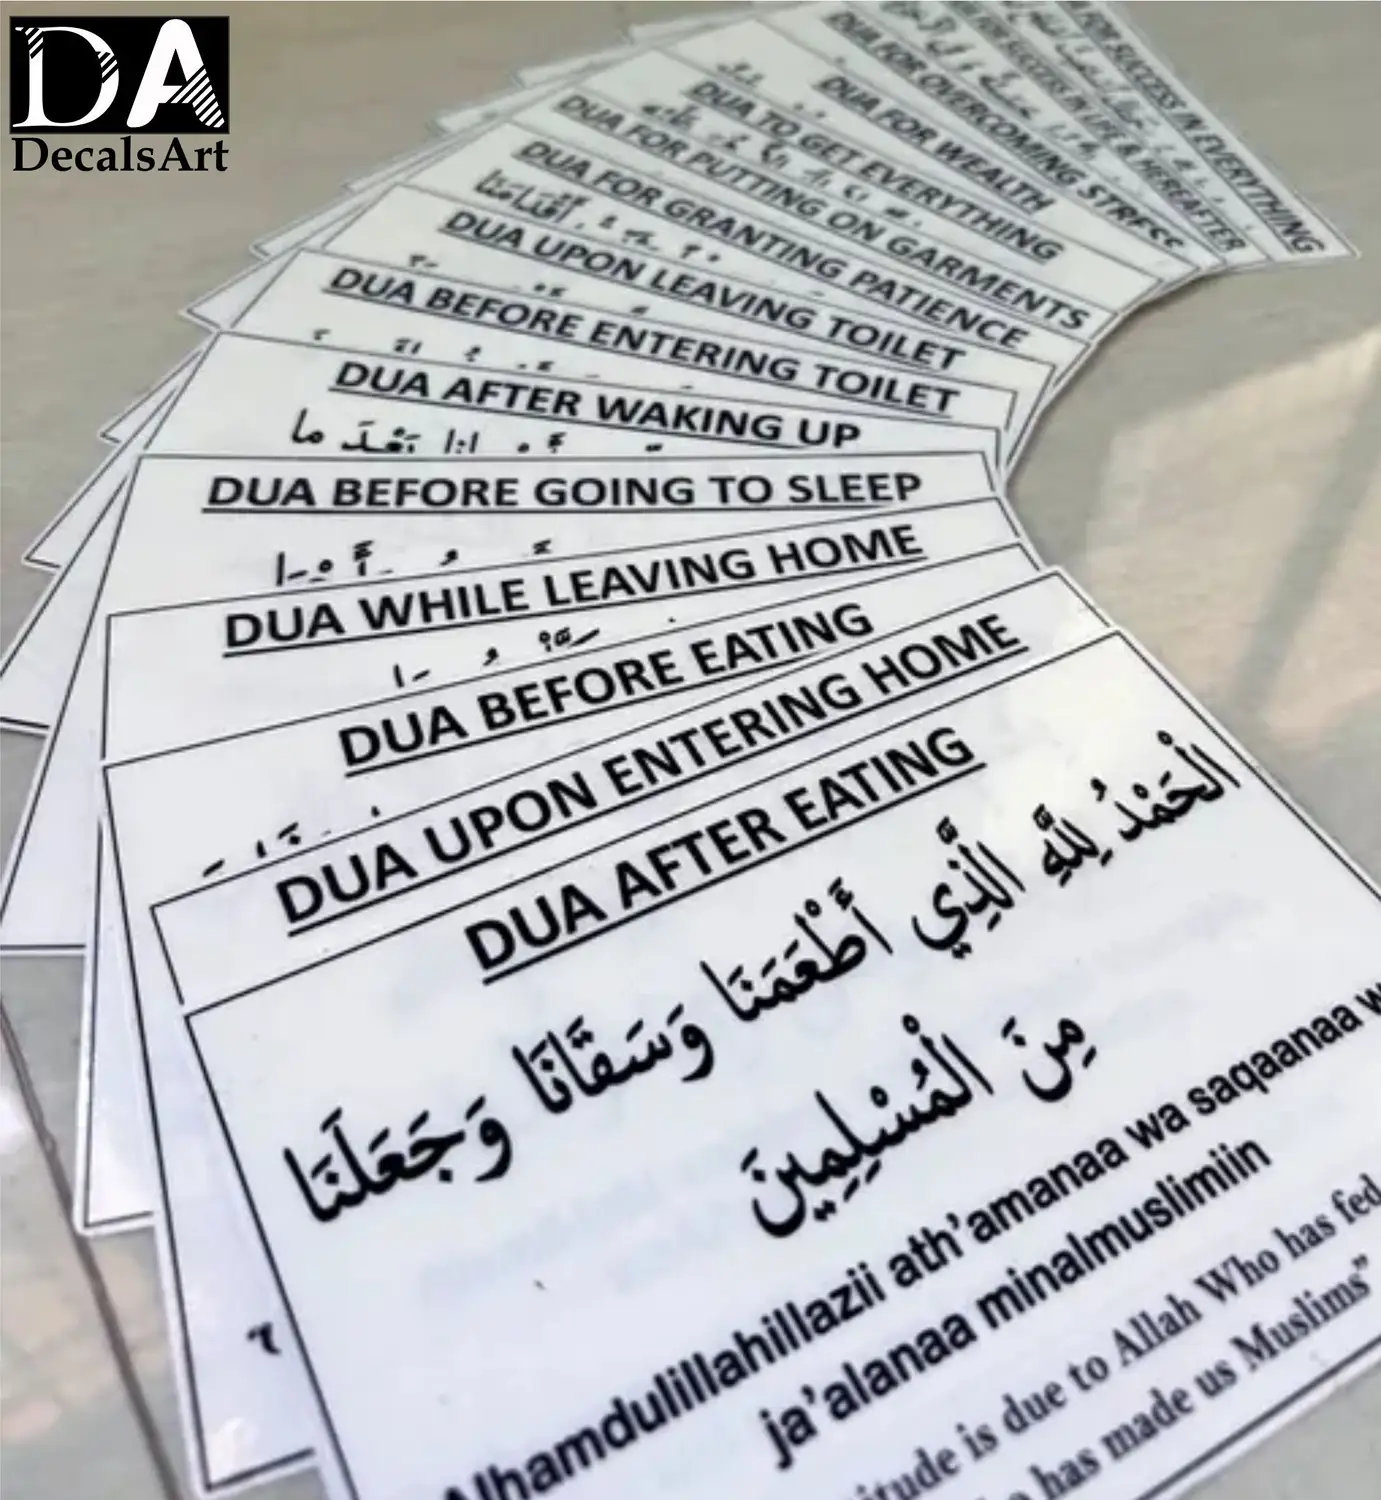 DA
DecalsArt
FOR SUCCESS IN EVERYTHING
FOR SUCCESS IN LIFE & HEREAFTER
DUA FOR OVERCOMING STRESS
DUA FOR WEALTH
DUA TO GET EVERYTHING
DUA FOR PUTTING ON GARMENTS
DUA FOR GRANTING PATIENCE
DUA UPON LEAVING TOILET
DUA BEFORE ENTERING TOILET
DUA AFTER WAKING UP
DUA BEFORE GOING TO SLEEP
DUA WHILE LEAVING HOME
DUA BEFORE EATING
DUA UPON ENTERING HOME
DUA AFTER EATING
الْحَمْدُ لِلَّهِ الَّذِي أَطْعَمَنَا وَسَقَانَا وَجَعَلَنَا
مِنَ الْمُسْلِمِينَ
Alhamdulillahillazii ath'amanaa wa saqaanaa w
ja'alanaa minalmuslimiin
itude is due to Allah Who has fed
has made us Muslims"